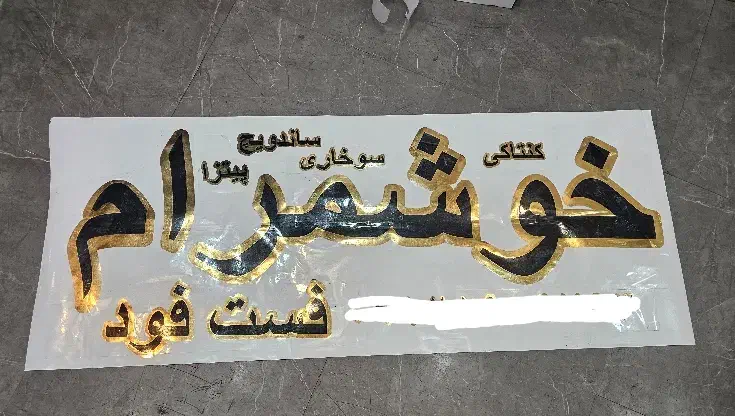 کنتاکی سوخاری ساندویچ پیتزا
خوشمرام
فست فود